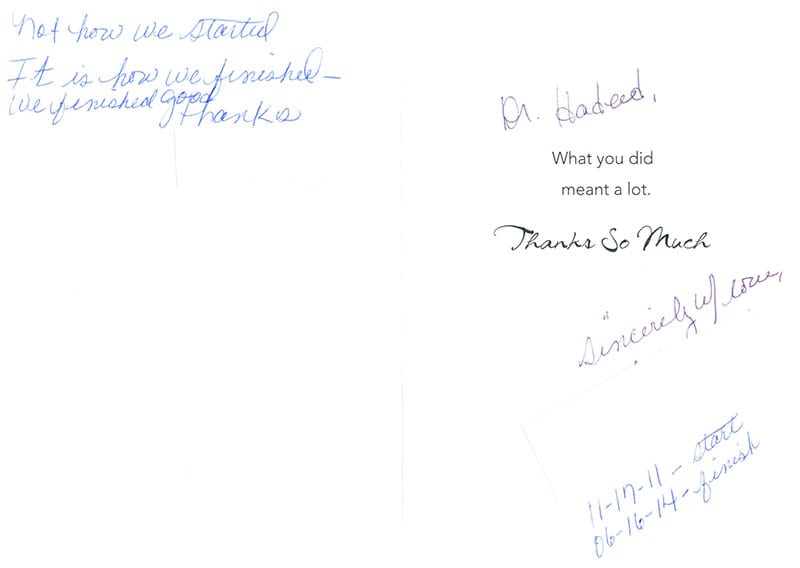 Not how we started
It is how we finished–
We finished good
Thanks
Dr. Hadeed,
What you did
meant a lot.
Thanks So Much
Sincerely w/ love,
11-17-11 – start
06-16-14 – finish